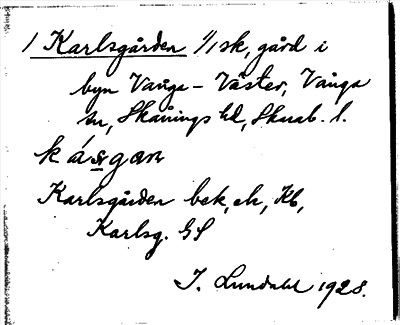 1 Karlsgården 1/1 sk, gård i
byn Vånga - Väster, Vånga
sn, Skånings hd, Skarab. l.
Karlsgården bek, ek, Kb,
Karlsg. GS
I. Lundahl 1928.